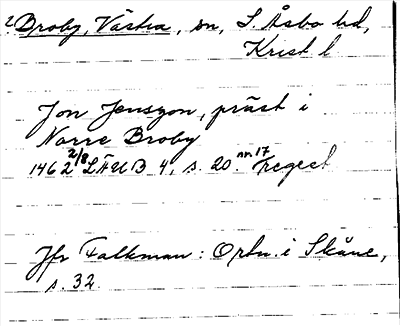 2. Broby, Västra, sn, S Åsbo hd,
Krist l.
Jon Jensson, präst i
Norre Broby
1462 2/8 LÄUB 4, s. 20. nr. 17 regest
Jfr Falkman: Ortn. i Skåne,
s. 32.